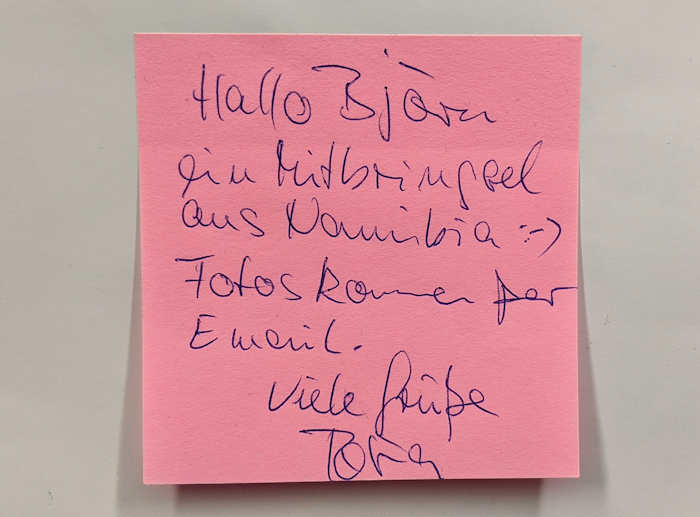 Hallo Björn
ein Mitbringsel
aus Namibia :-)
Fotos kommen per
Email.
Viele Grüße